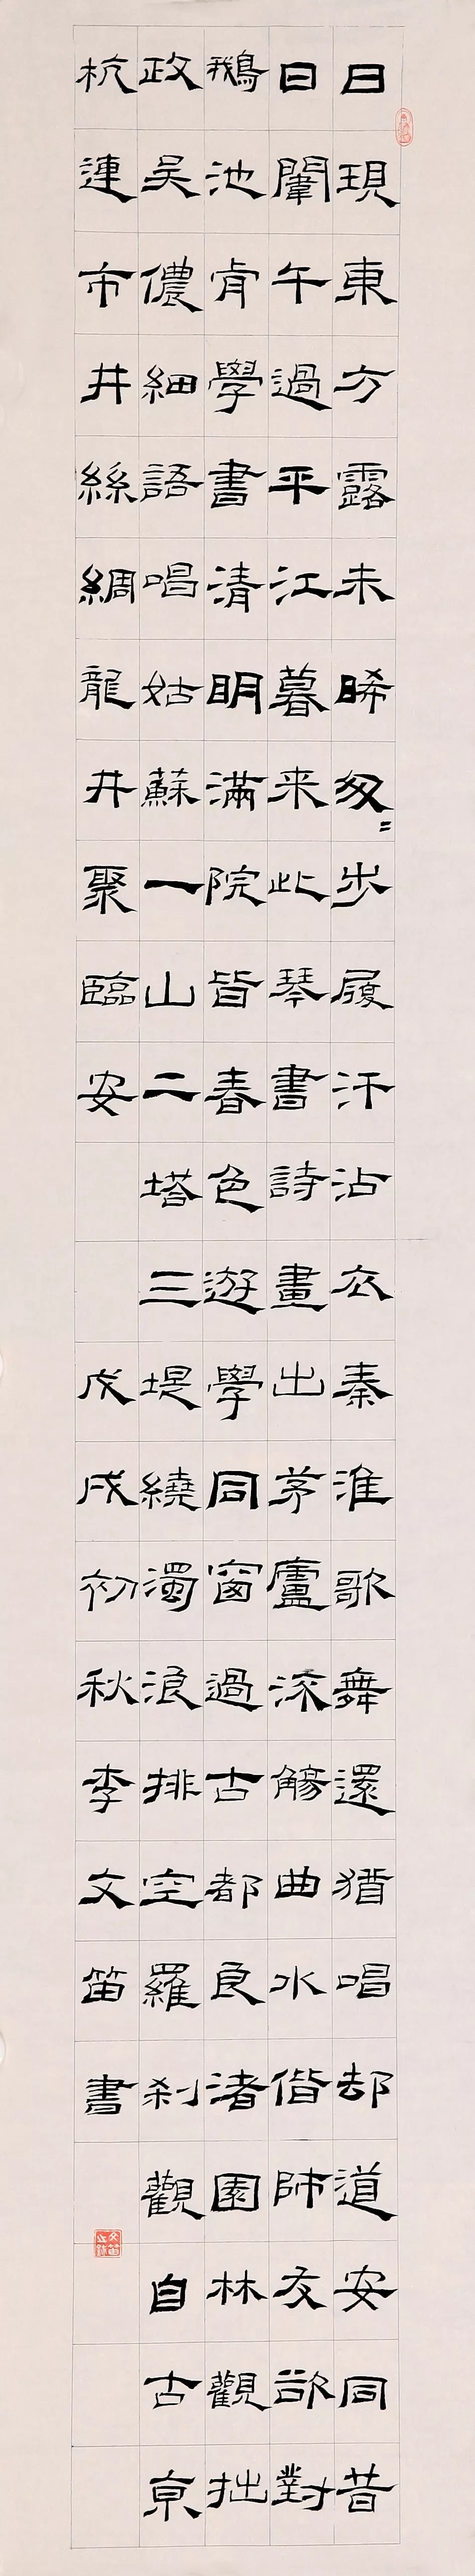 日現東方露未晞匆〻步履汗沾衣秦淮歌舞還猶唱却道安同昔
日闈午過平江暮来此琴書詩畫出茅廬流觴曲水偕師友欲對
鵝池肯學書清明滿院皆春色遊學同窗過古都良渚園林觀拙
政吴儂細語唱姑蘇一山二塔三堤繞濁浪排空羅刹觀自古京
杭連市井絲綢龍井聚臨安
戊戌初秋李文笛書